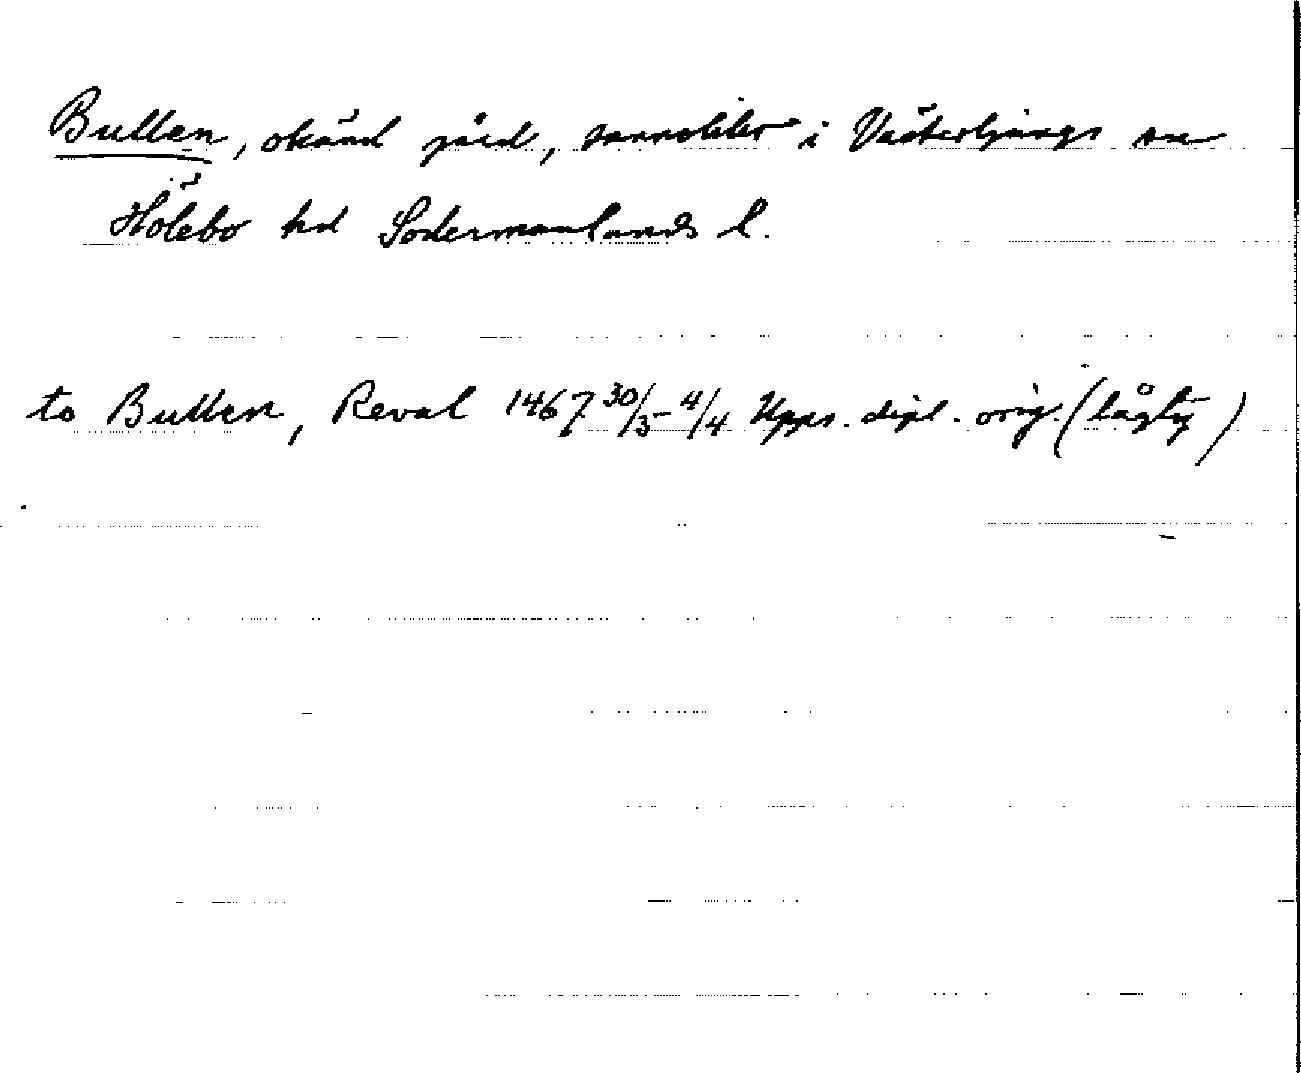 Bullen, okänd gård, sannolikt i Västerljungs sn
Hölebo hd Södermanlands l.
to Bullen, Reval 1467 30/3-4/4 Upps. dipl. orig. (lågty)